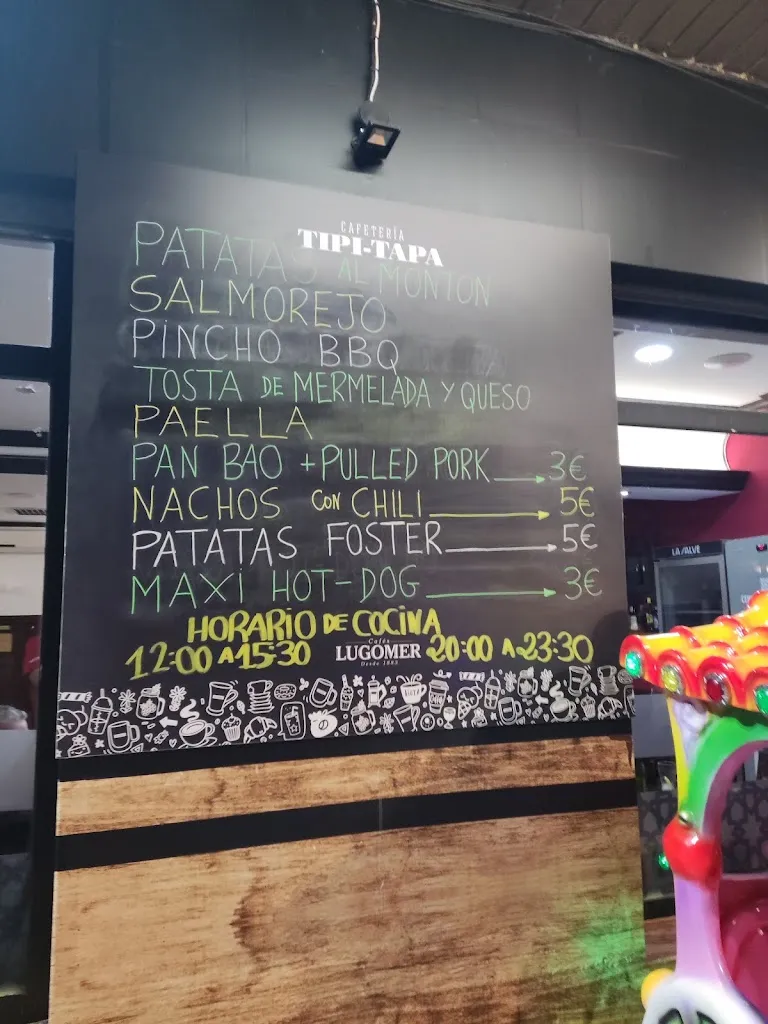 CAFETERÍA
TIPI-TAPA
PATATAS AL MONTON
SALMOREJO
PINCHO BBQ
TOSTA DE MERMELADA Y QUESO
PAELLA
PAN BAO + PULLED PORK 3€
NACHOS CON CHILI 5€
PATATAS FOSTER 5€
MAXI HOT-DOG 3€
HORARIO DE COCINA
12:00 A 15:30 20:00 A 23:30
Cafés
LUGOMER
Desde 1883
LA SALVE